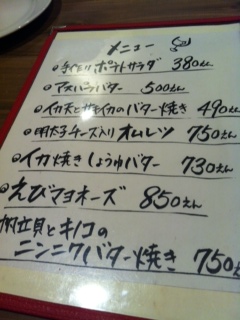 メニュー
手作りポテトサラダ 380えん
アスパラバター 500えん
イカ天とげそイカのバター焼き 490えん
明太子チーズ入りオムレツ 750えん
イカ焼きしょうゆバター 730えん
えびマヨネーズ 850えん
帆立貝とキノコの
ニンニクバター焼き 750えん